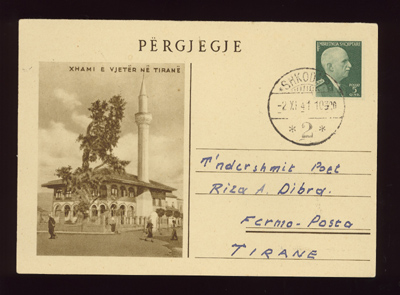 PËRGJEGJE
XHAMI E VJETËR NË TIRANË
SHKODËR
-2 XI 41 10
* 2 *
2
T'ndershmit Poet
Riza A. Dibra.
Fermo-Posta
TIRANE